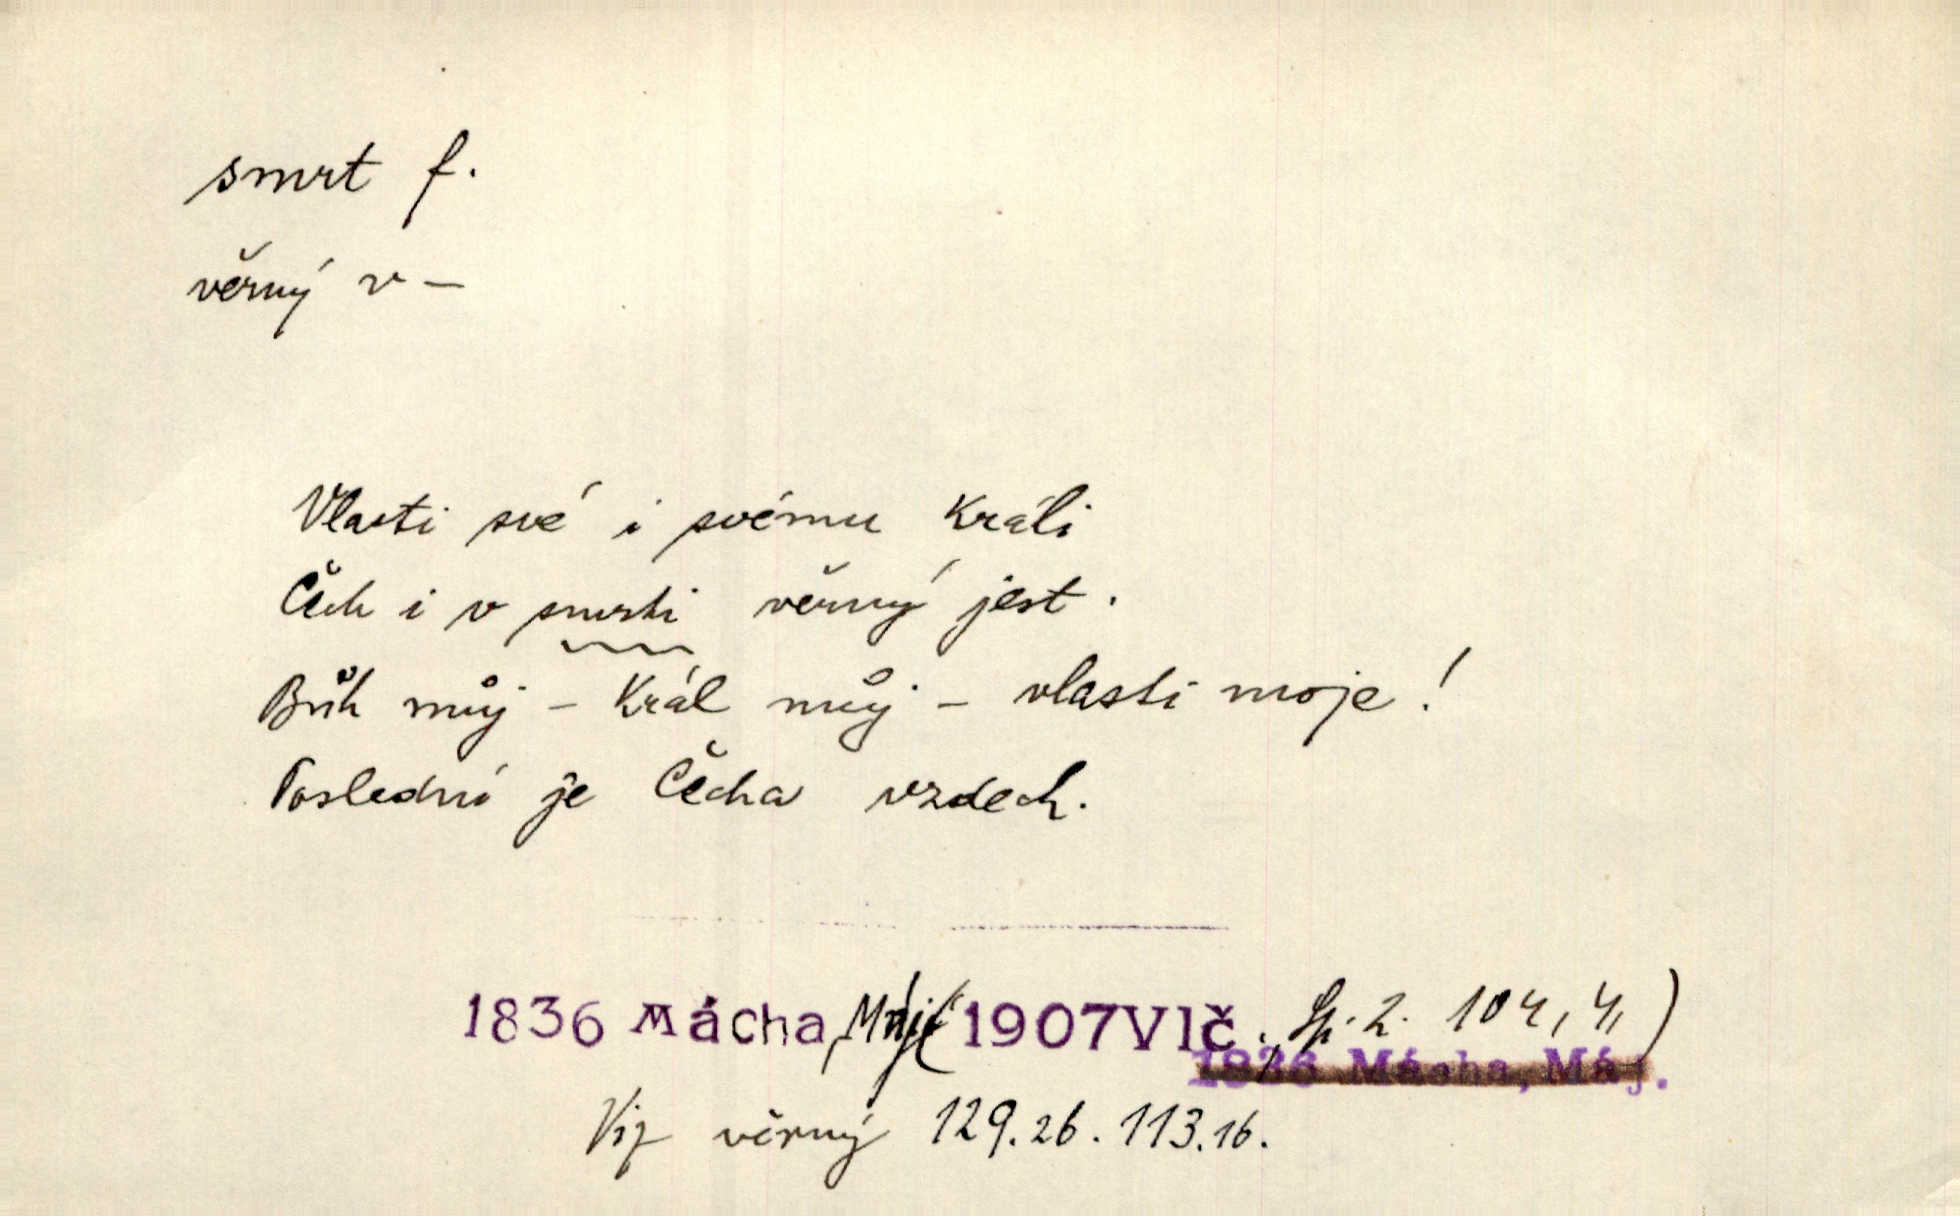 smrt f.
věrný v –
Vlasti své i svému Králi
Čech i v smrti věrný jest.
Bůh můj – Král můj – vlasti moje!
Poslední je Čecha vzdech.
1836 Mácha, 1907 Vlč., Sp. 2. 104, 4,)
1836 Mácha, Máj.
Viz věrný 129.26. 113.16.